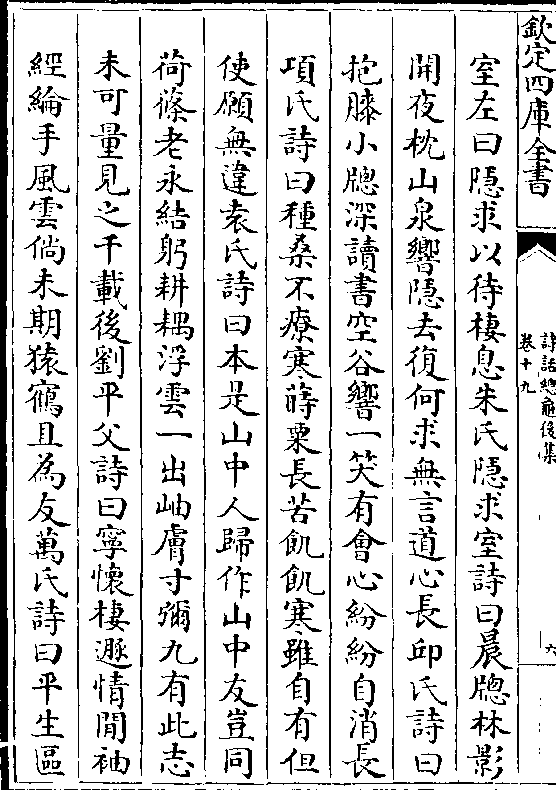 欽定四庫全書
詩話總龜後集
卷十九
六
室左曰隠求以待棲息朱氏隠求室詩曰晨牕林影
開夜枕山泉響隠去復何求無言道心長邱氏詩曰
抱膝小牕深讀書空谷響一笑有會心紛紛自消長
項氏詩曰種桑不療寒蒔粟長苦飢飢寒雖自有但
使願無違袁氏詩曰本是山中人歸作山中友豈同
荷蓧老永結躬耕耦浮雲一出岫膚寸彌九有此志
未可量見之千載後劉平父詩曰寧懐棲遯情閒袖
經綸手風雲倘未期猿鶴且為友萬氏詩曰平生區